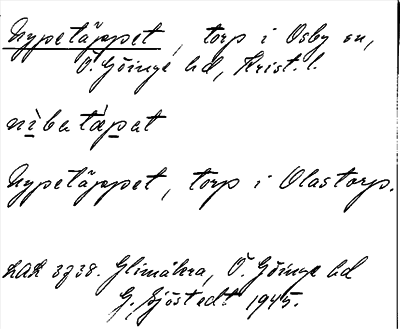 Nypetäppet, torp i Osby sn,
Ö. Göinge hd, Krist. l.
nìbetæ̀pat
Nypetäppet, torp i Olastorp.
LAL 3738. Glimåkra, Ö. Göinge hd
G. Sjöstedt 1945.